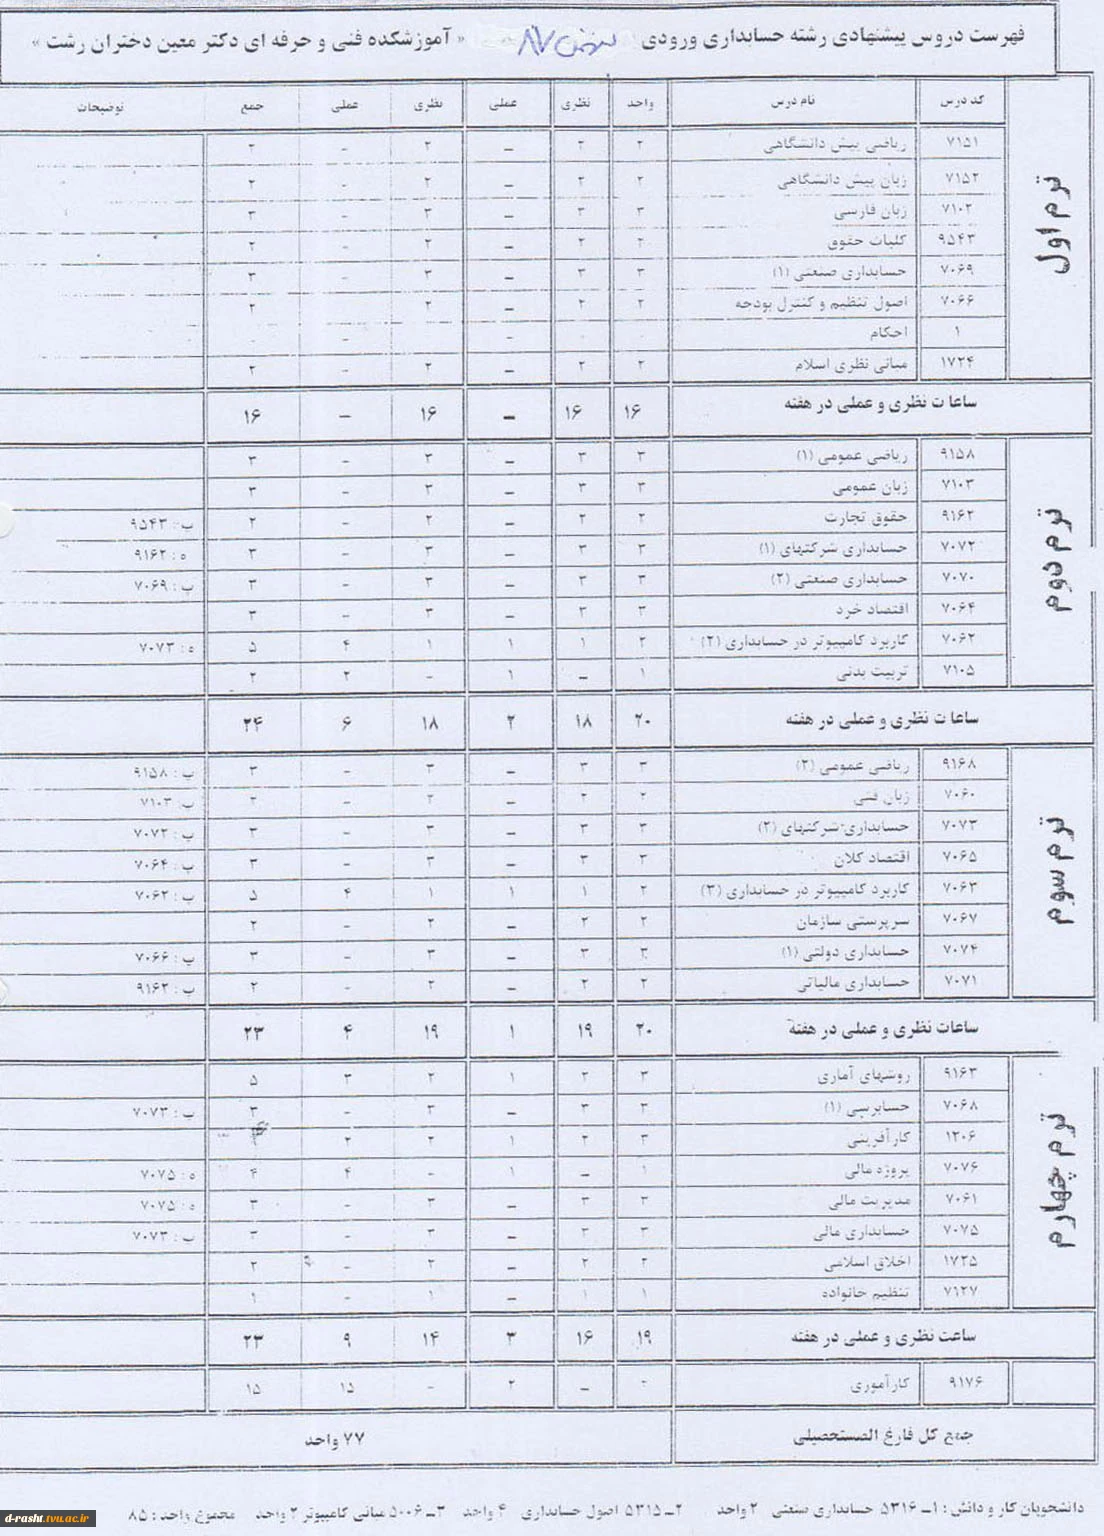 فهرست دروس پیشنهادی رشته حسابداری ورودی ۸۷ « آموزشکده فنی و حرفه ای دکتر معین دختران رشت »
کد درس نام درس واحد نظری عملی نظری عملی جمع توضیحات
ترم اول
۷۱۵۱ ریاضی پیش دانشگاهی ۲ ۲ ـ ۲ - ۲
۷۱۵۲ زبان پیش دانشگاهی ۲ ۲ ـ ۲ - ۲
۷۱۰۲ زبان فارسی ۳ ۳ ـ ۳ - ۳
۹۵۴۳ کلیات حقوق ۲ ۲ ـ ۲ - ۲
۷۰۶۹ حسابداری صنعتی (۱) ۳ ۳ ـ ۳ - ۳
۷۰۶۶ اصول تنظیم و کنترل بودجه ۲ ۲ ـ ۲ - ۲
۱ احکام - - -
۱۷۲۴ مبانی نظری اسلام ۲ ۲ ـ ۲ - ۲
ساعات نظری و عملی در هفته ۱۶ ۱۶ ـ ۱۶ – ۱۶
ترم دوم
۹۱۵۸ ریاضی عمومی (۱) ۳ ۳ ـ ۳ - ۳
۷۱۰۳ زبان عمومی ۳ ۳ ـ ۳ - ۳
۹۱۶۲ حقوق تجارت ۲ ۲ ـ ۲ - ۲ پ: ۹۵۴۳
۷۰۷۲ حسابداری شرکتهای (۱) ۳ ۳ ـ ۳ - ۳ ه : ۹۱۶۲
۷۰۷۰ حسابداری صنعتی (۲) ۳ ۳ ـ ۳ - ۳ پ : ۷۰۶۹
۷۰۶۴ اقتصاد خرد ۳ ۳ ـ ۳ - ۳
۷۰۶۲ کاربرد کامپیوتر در حسابداری (۲) ۲ ۱ ۱ ۱ ۴ ۵ ه : ۷۰۷۳
۷۱۰۵ تربیت بدنی ۱ ـ ۱ - ۲ ۲
ساعات نظری و عملی در هفته ۲۰ ۱۸ ۲ ۱۸ ۶ ۲۴
ترم سوم
۹۱۶۸ ریاضی عمومی (۲) ۳ ۳ ـ ۳ - ۳ پ : ۹۱۵۸
۷۰۶۰ زبان فنی ۲ ۲ ـ ۲ - ۲ پ: ۷۱۰۳
۷۰۷۳ حسابداری شرکتهای (۲) ۳ ۳ ـ ۳ - ۳ پ : ۷۰۷۲
۷۰۶۵ اقتصاد کلان ۳ ۳ ـ ۳ - ۳ پ : ۷۰۶۴
۷۰۶۳ کاربرد کامپیوتر در حسابداری (۳) ۲ ۱ ۱ ۱ ۴ ۵ پ : ۷۰۶۲
۷۰۶۷ سرپرستی سازمان ۲ ۲ ـ ۲ - ۲
۷۰۷۴ حسابداری دولتی (۱) ۳ ۳ ـ ۳ - ۳ پ : ۷۰۶۶
۷۰۷۱ حسابداری مالیاتی ۲ ۲ ـ ۲ - ۲ پ : ۹۱۶۲
ساعات نظری و عملی در هفته ۲۰ ۱۹ ۱ ۱۹ ۴ ۲۳
ترم چهارم
۹۱۶۳ روشهای آماری ۳ ۲ ۱ ۲ ۳ ۵
۷۰۶۸ حسابرسی (۱) ۳ ۳ ـ ۳ - ۳ پ : ۷۰۷۳
۱۲۰۶ کارآفرینی ۳ ۲ ۱ ۲ ۲
۷۰۷۶ پروژه مالی ۱ ـ ۱ - ۴ ۴ ه : ۷۰۷۵
۷۰۶۱ مدیریت مالی ۳ ۳ ـ ۳ - ۳ ه : ۷۰۷۵
۷۰۷۵ حسابداری مالی ۳ ۳ ـ ۳ - ۳ پ : ۷۰۷۳
۱۷۳۵ اخلاق اسلامی ۲ ۲ ـ ۲ - ۲
۷۱۲۷ تنظیم خانواده ۱ ۱ ـ ۱ - ۱
ساعت نظری و عملی در هفته ۱۹ ۱۶ ۳ ۱۴ ۹ ۲۳
۹۱۷۶ کارآموزی ۲ ـ ۲ - ۱۵ ۱۵
جمع کل فارغ المستحصیلی ۷۷ واحد
دانشجویان کار و دانش : ۱ـ ۵۳۱۶ حسابداری صنعتی ۲ واحد ۲ـ ۵۳۱۵ اصول حسابداری ۴ واحد ۳ـ ۵۰۰۶ مبانی کامپیوتر ۲ واحد مجموع واحد : ۸۵
d-rasht.tvu.ac.ir